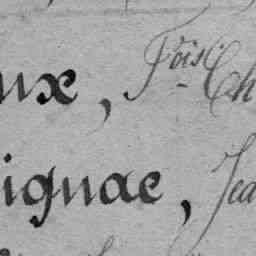 ux, Fois Ch
ignac, Jea